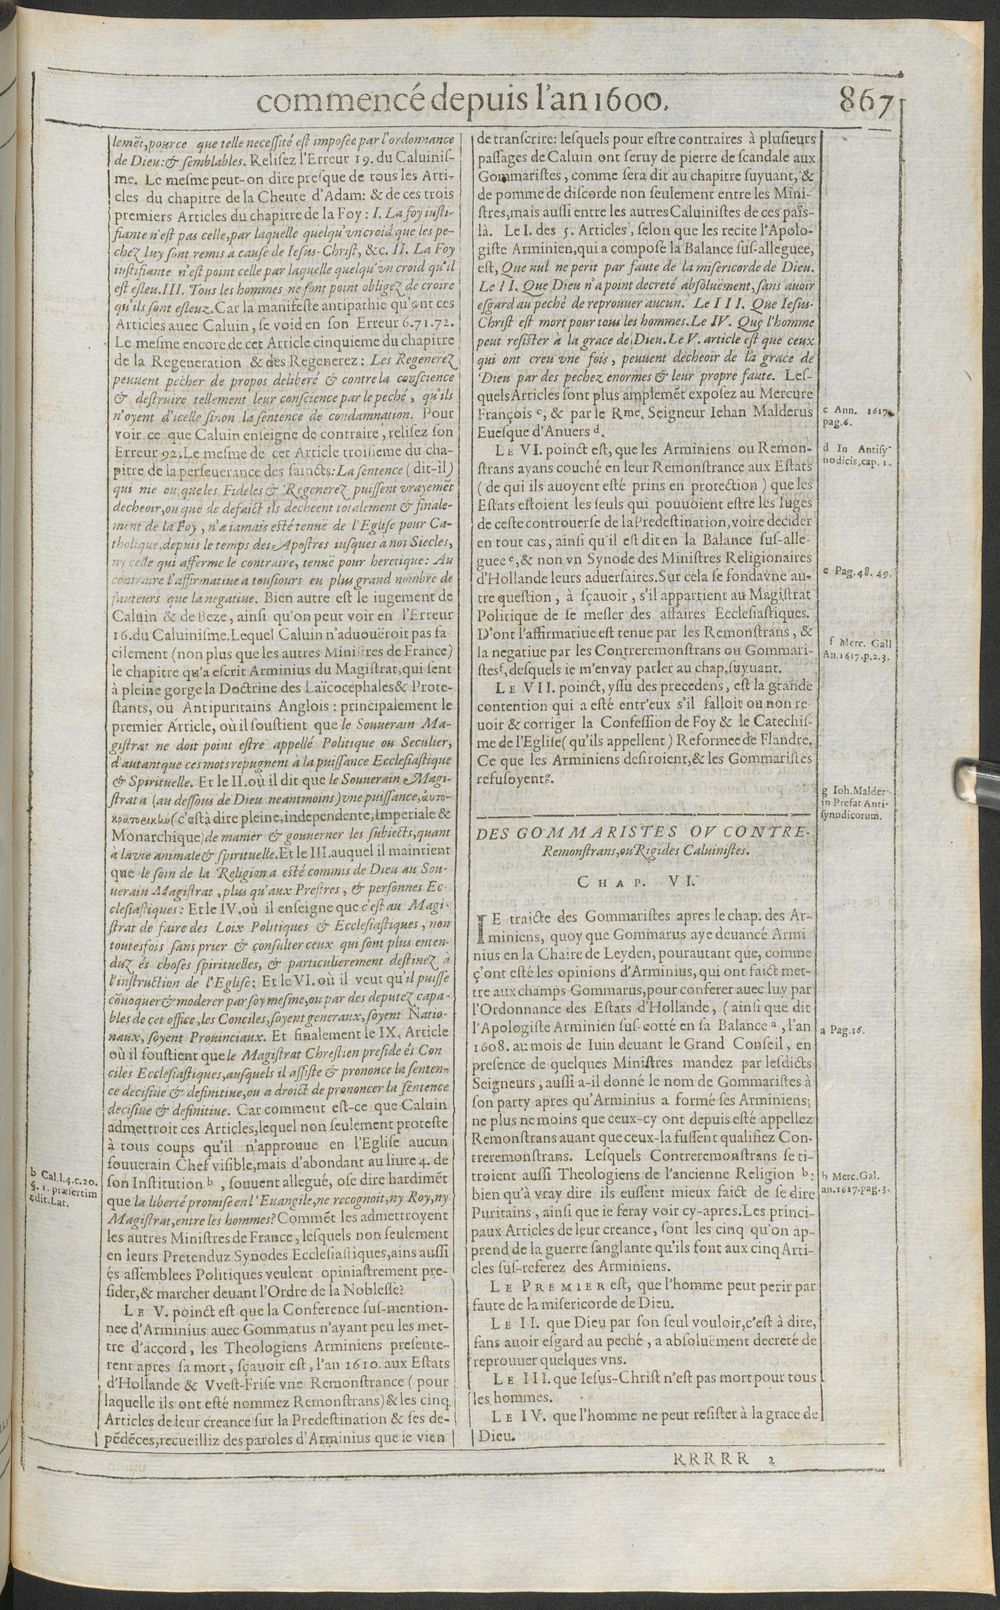 commencé depuis l'an 1600.
867
lemẽt, pource que telle necessité est imposée par l'ordonnance
de Dieu: & semblables. Relisez l'Erreur 19. du Caluinis-
me. Le mesme peut-on dire presque de tous les Arti-
cles du chapitre de la Cheute d'Adam: & de ces trois
premiers Articles du chapitre de la Foy: I. La foy iusti-
fiante n'est pas celle, par laquelle quelqu'vn croid que les pe-
chez luy sont remis a cause de Iesus-Christ, &c. II. La Foy
iustifiante n'est point celle par laquelle quelqu'vn croid qu'il
est esleu. III. Tous les hommes ne sont point obligez de croire
qu'ils sont esleuz. Car la manifeste antipathie qu'ont ces
Articles auec Caluin, se void en son Erreur 6.71.72.
Le mesme encore de cet Article cinquieme du chapitre
de la Regeneration & des Regenerez: Les Regenerez
peuuent pecher de propos deliberé & contre la conscience
& destruire tellement leur conscience par le peché, qu'ils
n'oyent d'icelle sinon la sentence de condamnation. Pour
voir ce que Caluin enseigne de contraire, relisez son
Erreur 92. Le mesme de cet Article troisieme du cha-
pitre de la perseuerance des saincts: La sentence (dit-il)
qui nie ou que les Fideles & Regenerez puissent vrayemẽt
decheoir, ou que de defaict ils decheent totalement & finale-
ment de la Foy, n'a iamais esté tenuë de l'Eglise pour Ca-
tholique, depuis le temps des Apostres iusques a noz Siecles,
ny celle qui afferme le contraire, tenue pour heretique: Au
contraire l'affirmatiue a tousiours eu plus grand nombre de
fauteurs que la negatiue. Bien autre est le iugement de
Caluin & de Beze, ainsi qu'on peut voir en l'Erreur
16. du Caluinisme. Lequel Caluin n'aduoüeroit pas fa
cilement (non plus que les autres Ministres de France)
le chapitre qu'a escrit Arminius du Magistrat, qui sent
à pleine gorge la Doctrine des Laïcocephales & Prote-
stants, ou Antipuritains Anglois: principalement le
premier Article, où il soustient que le Souuerain Ma-
gistrat ne doit point estre appellé Politique ou Seculier,
d'autant que ces mots repugnent à la puissance Ecclesiastique
& Spirituelle. Et le II. où il dit que le Souuerain Magi-
strat a (au dessous de Dieu neantmoins) vne puissance, αυτο-
κρατορικὴν (c'est à dire pleine, independente, Imperiale &
Monarchique) de manier & gouuerner les subiects, quant
à la vie animale & spirituelle. Et le III. auquel il maintient
que le soin de la Religion a esté commis de Dieu au Sou-
uerain Magistrat, plus qu'aux Prestres, & personnes Ec
clesiastiques: Et le IV. où il enseigne que c'est au Magi-
strat de faire des Loix Politiques & Ecclesiastiques, non
toutesfois sans prier & consulter ceux qui sont plus enten-
duz és choses spirituelles, & particulierement destinez à
l'instruction de l'Eglise: Et le VI. où il veut qu'il puisse
cõuoquer & moderer par soy mesme, ou par des deputez capa-
bles de cet office, les Conciles, soyent generaux, soyent Natio-
naux, soyent Prouinciaux. Et finalement le IX. Article
où il soustient que le Magistrat Chrestien preside és Con
ciles Ecclesiastiques, ausquels il assiste & prononce la senten-
ce decisiue & definitiue, ou a droict de prononcer la sentence
decisiue & definitiue. Car comment est-ce que Caluin
admettroit ces Articles, lequel non seulement proteste
à tous coups qu'il n'approuue en l'Eglise aucun
souuerain Chef visible, mais d'abondant au liure 4. de
son Institution b, souuent allegué, ose dire hardimẽt
que la liberté promise en l'Euangile, ne recognoit, ny Roy, ny
Magistrat, entre les hommes? Commẽt les admettroyent
les autres Ministres de France, lesquels non seulement
en leurs Pretenduz Synodes Ecclesiastiques, ains aussi
és assemblees Politiques veulent opiniastrement pre-
sider, & marcher deuant l'Ordre de la Noblesse?
LE V. poinct est que la Conference sus-mention-
nee d'Arminius auec Gommarus n'ayant peu les met-
tre d'accord, les Theologiens Arminiens presente-
rent apres sa mort, sçauoir est, l'an 1610. aux Estats
d'Hollande & Vvest-Frise vne Remonstrance (pour
laquelle ils ont esté nommez Remonstrans) & les cinq
Articles de leur creance sur la Predestination & ses de-
pẽdẽces, recueilliz des paroles d'Arminius que ie vien
b Cal. l. 4. c. 20.
§. 1. præsertim
edit. Lat.
de transcrire: lesquels pour estre contraires à plusieurs
passages de Caluin ont seruy de pierre de scandale aux
Gommaristes, comme sera dit au chapitre suyuant, &
de pomme de discorde non seulement entre les Mini-
stres, mais aussi entre les autres Caluinistes de ces païs-
là. Le I. des 5. Articles, selon que les recite l'Apolo-
giste Arminien, qui a composé la Balance sus-alleguee,
est, Que nul ne perit par faute de la misericorde de Dieu.
Le II. Que Dieu n'a point decreté absoluëment, sans auoir
esgard au peché de reprouuer aucun. Le III. Que Iesus-
Christ est mort pour tous les hommes. Le IV. Que l'homme
peut resister à la grace de Dieu. Le V. article est que ceux
qui ont creu vne fois, peuuent decheoir de la grace de
Dieu par des pechez enormes & leur propre faute. Les-
quels Articles sont plus amplemẽt exposez au Mercure
François c, & par le Rme. Seigneur Iehan Malderus
Euesque d'Anuers d.
LE VI. poinct est, que les Arminiens ou Remon-
strans ayans couché en leur Remonstrance aux Estats
(de qui ils auoyent esté prins en protection) que les
Estats estoient les seuls qui pouuoient estre les Iuges
de ceste controuerse de la Predestination, voire decider
en tout cas, ainsi qu'il est dit en la Balance sus-alle-
guee e, & non vn Synode des Ministres Religionaires
d'Hollande leurs aduersaires. Sur cela se fonda vne au-
tre question, à sçauoir, s'il appartient au Magistrat
Politique de se mesler des affaires Ecclesiastiques.
D'ont l'affirmatiue est tenue par les Remonstrans, &
la negatiue par les Contreremonstrans ou Gommari-
stes f, desquels ie m'en vay parler au chap. suyuant.
LE VII. poinct, yssu des precedens, est la grande
contention qui a esté entr'eux s'il falloit ou non re-
uoir & corriger la Confession de Foy & le Catechis-
me de l'Eglise (qu'ils appellent) Reformee de Flandre.
Ce que les Arminiens desiroient, & les Gommaristes
refusoyent g.
c Ann. 1617.
pag. 6.
d In Antisy-
nodicis, cap. 1.
e Pag. 48. 49.
f Merc. Gall
An. 1617. p. 2. 3.
g Ioh. Malder
in Præfat Anti-
synodicorum.
DES GOMMARISTES OV CONTRE-
Remonstrans, ou Rigides Caluinistes.
CHAP. VI.
IE traicte des Gommaristes apres le chap. des Ar-
miniens, quoy que Gommarus aye deuancé Armi
nius en la Chaire de Leyden, pourautant que, comme
ç'ont esté les opinions d'Arminius, qui ont faict met-
tre aux champs Gommarus, pour conferer auec luy par
l'Ordonnance des Estats d'Hollande, (ainsi que dit
l'Apologiste Arminien sus-cotté en sa Balance a, l'an
1608. au mois de Iuin deuant le Grand Conseil, en
presence de quelques Ministres mandez par lesdicts
Seigneurs, aussi a-il donné le nom de Gommaristes à
son party apres qu'Arminius a formé ses Arminiens;
ne plus ne moins que ceux-cy ont depuis esté appellez
Remonstrans auant que ceux-la fussent qualifiez Con-
treremonstrans. Lesquels Contreremonstrans se ti-
troient aussi Theologiens de l'ancienne Religion b:
bien qu'à vray dire ils eussent mieux faict de se dire
Puritains, ainsi que ie feray voir cy-apres. Les princi-
paux Articles de leur creance, sont les cinq qu'on ap-
prend de la guerre sanglante qu'ils font aux cinq Arti-
cles sus-referez des Arminiens.
LE PREMIER est, que l'homme peut perir par
faute de la misericorde de Dieu.
LE II. que Dieu par son seul vouloir, c'est à dire,
sans auoir esgard au peché, a absoluëment decreté de
reprouuer quelques vns.
LE III. que Iesus-Christ n'est pas mort pour tous
les hommes.
LE IV. que l'homme ne peut resister à la grace de
Dieu.
a Pag. 16.
b Merc. Gal.
an. 1617. pag. 3.
RRRRR 2